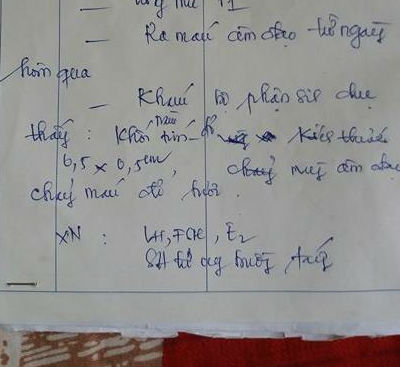 — Ra máu âm đạo từ ngày
hôm qua
— Khám bộ phận sinh dục
thấy : Khối màu tím - đỏ kích thước
0,5 x 0,5cm,
chảy máu đỏ tươi.
XN : LH, FSH, E2
SÂ tử cung buồng trứng